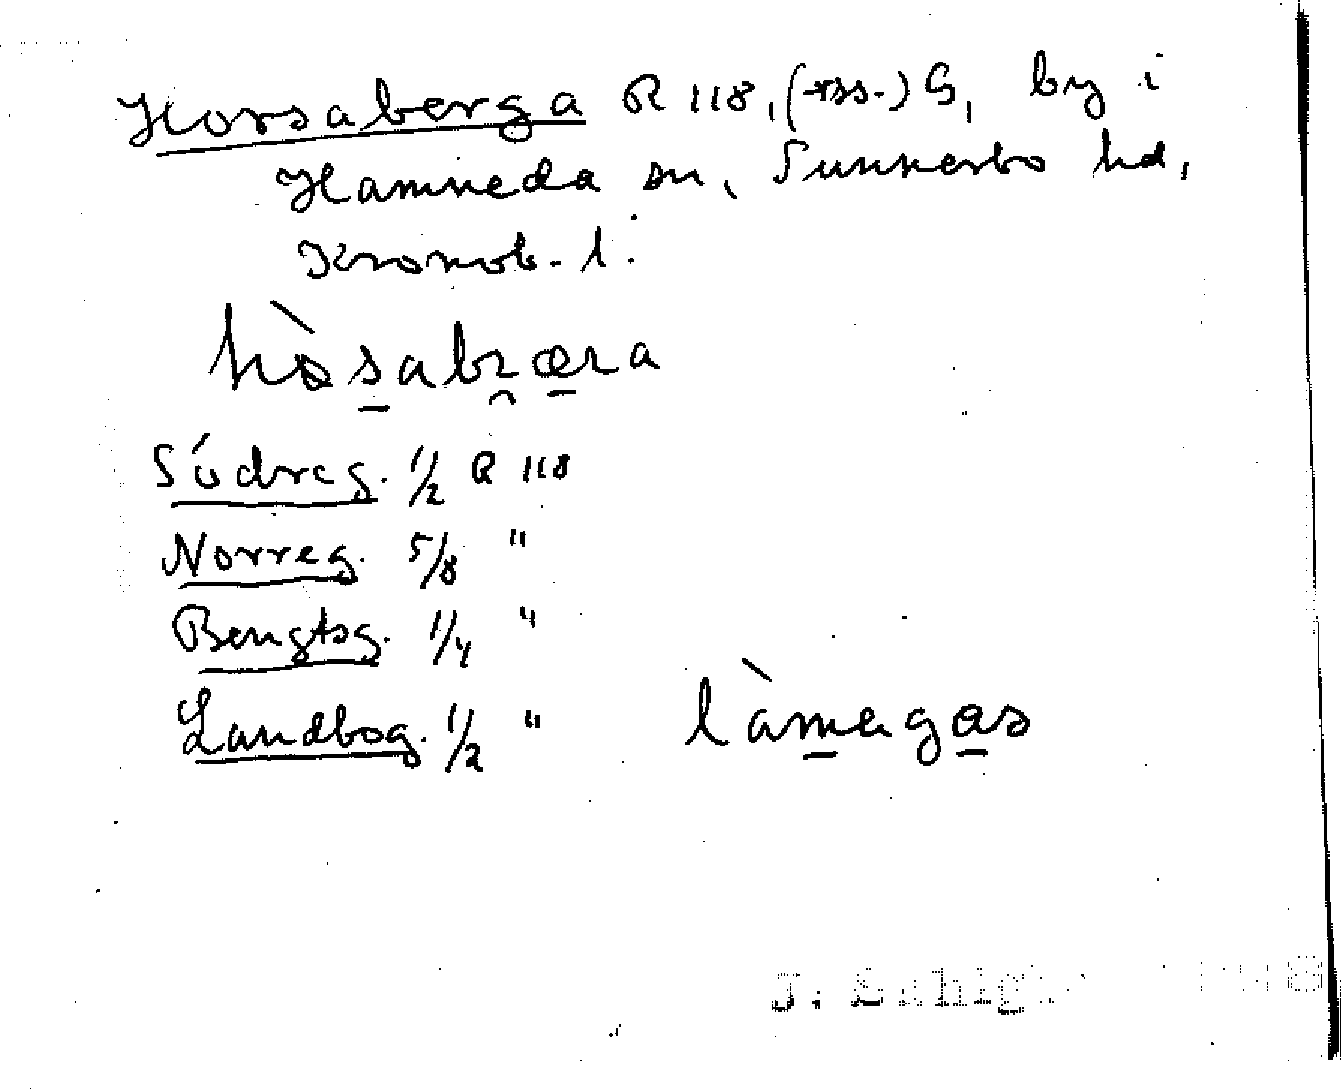 Horsaberga R 118, (-rss-) G, by i
Hamneda sn, Sunnerbo hd,
Kronob. l.
hòsabræra
Södreg. 1/2 R 118
Norreg. 5/8 "
Bengtsg. 1/4 "
Landbog. 1/2 " làmagas
J. Sahlgr